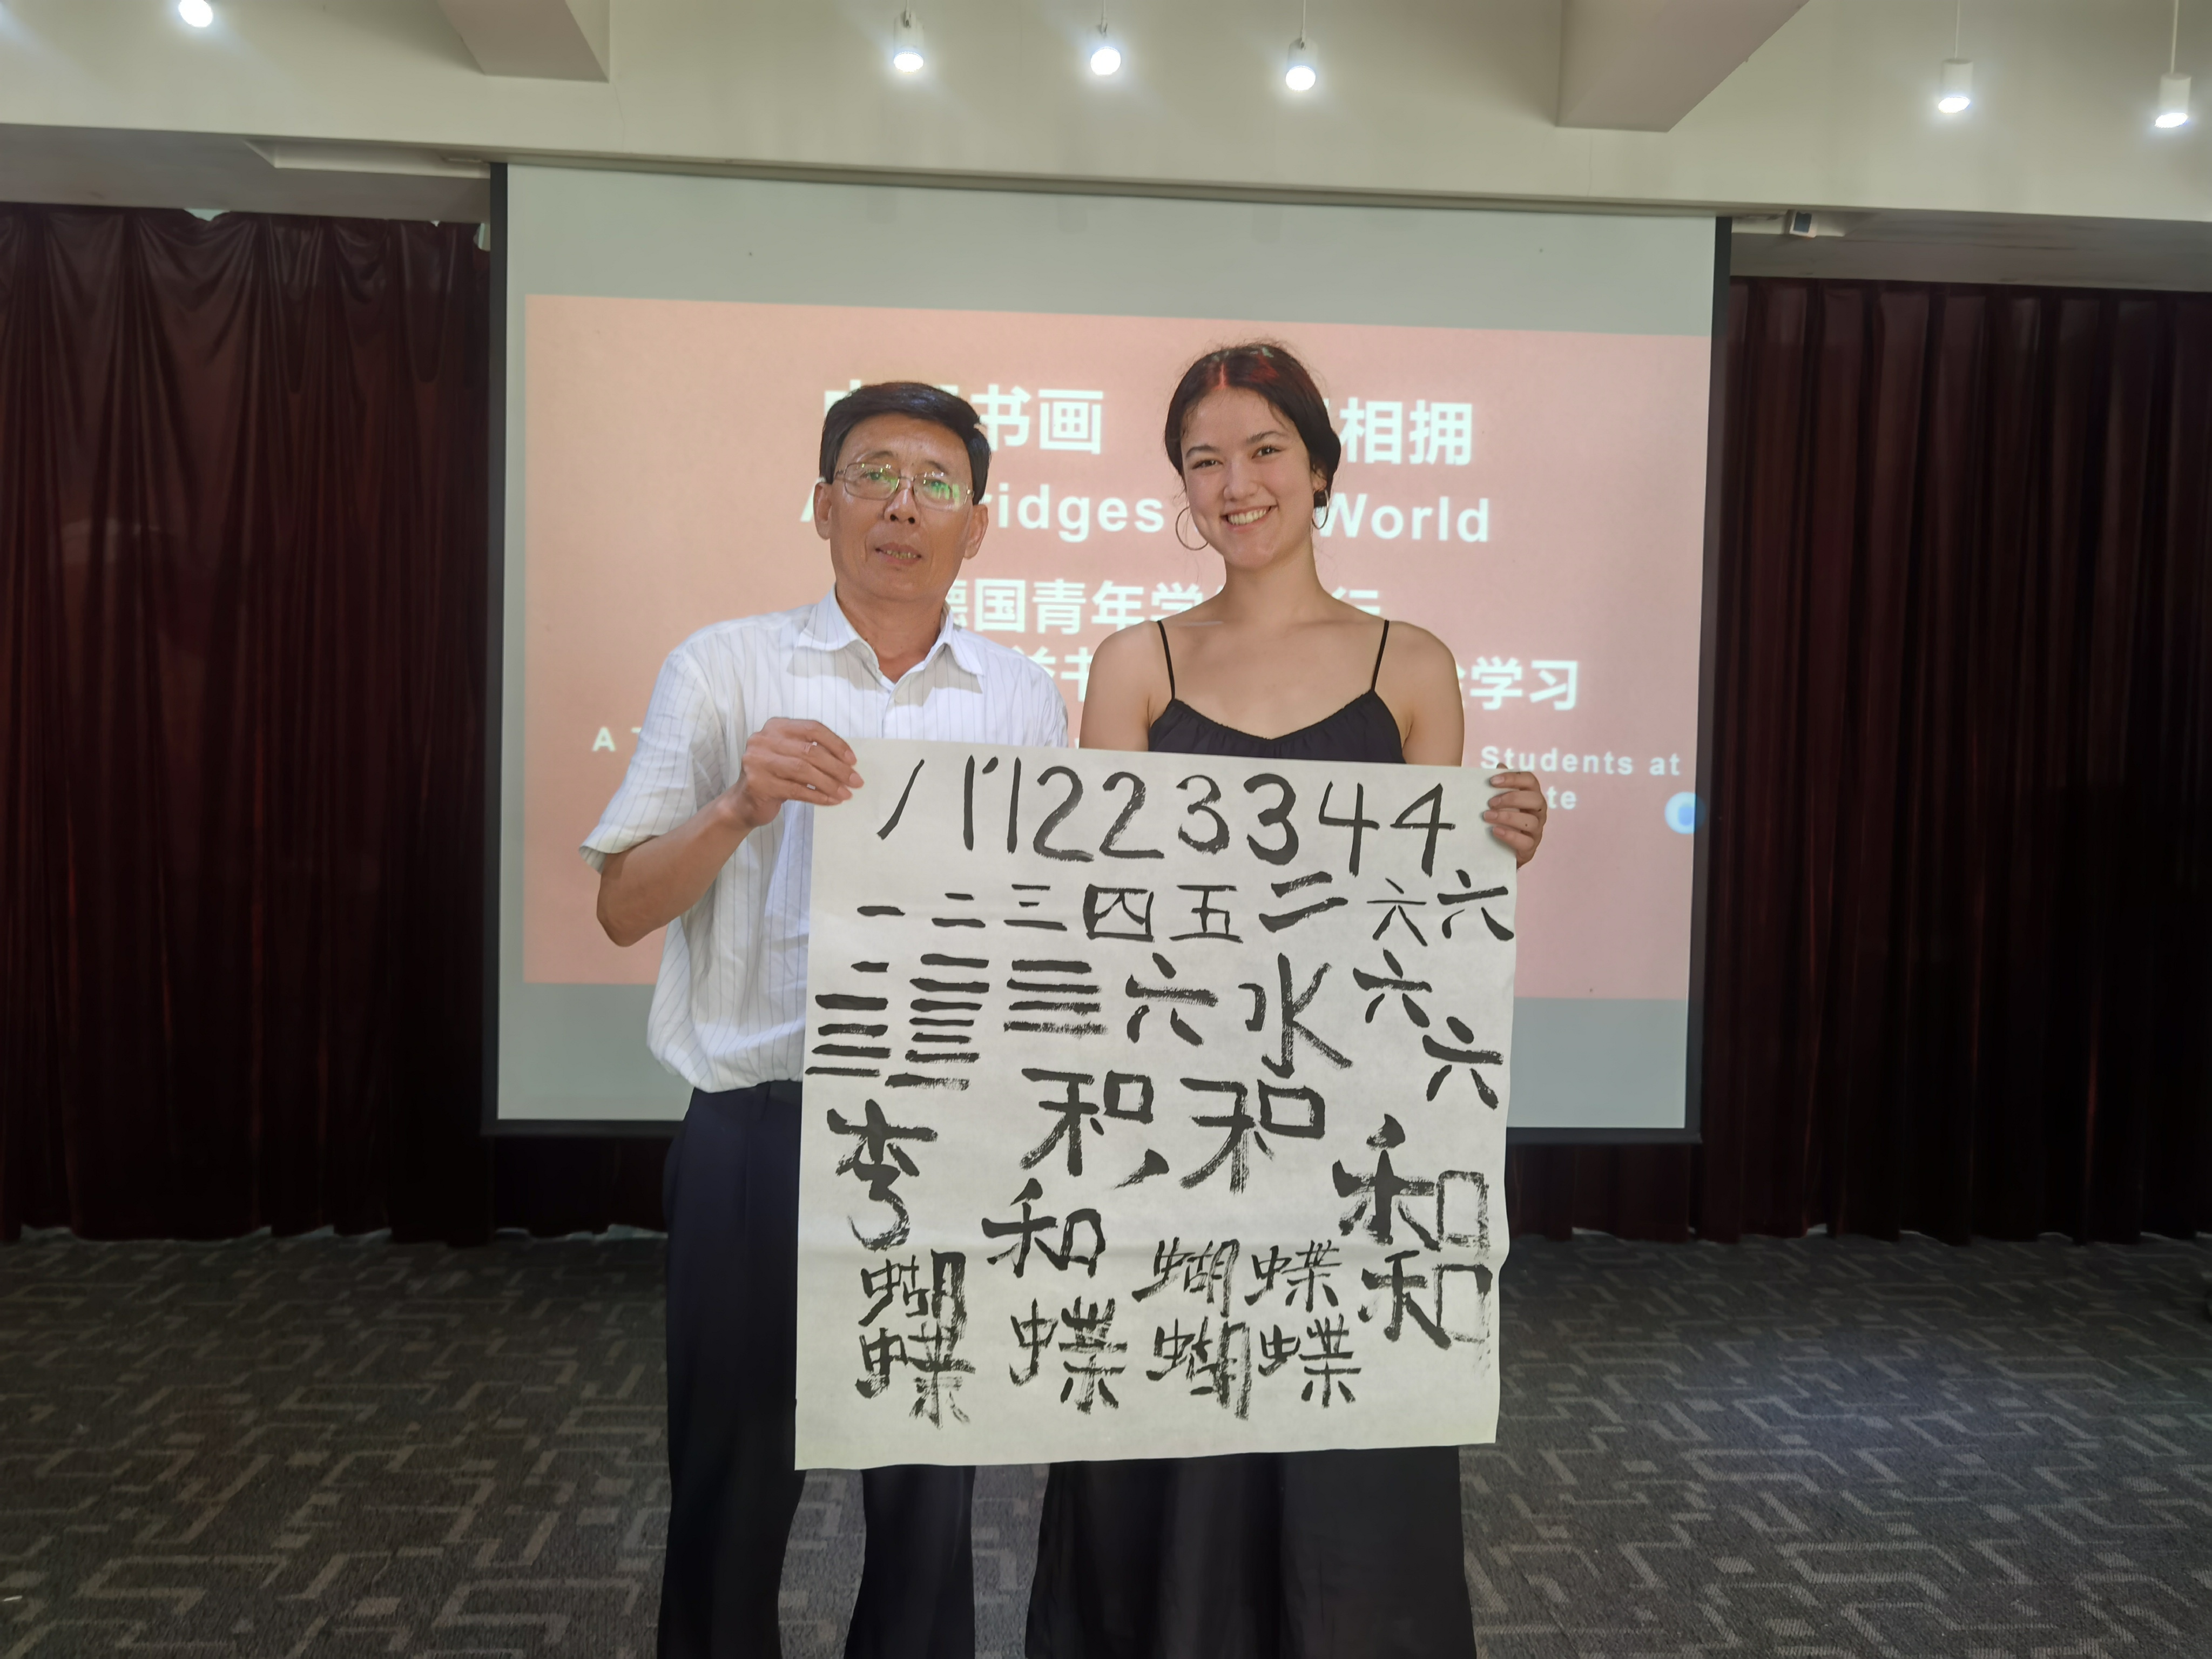 书画 相拥
ridges World
德国青年学 行
学习
A Students at
1 1 1 1 2 2 3 3 4 4
一 二 三 四 五 二 六 六
六 水 六
六
和 和
和 和
蝴 蝴 蝶 和
蝶 蝶 蝴 蝶